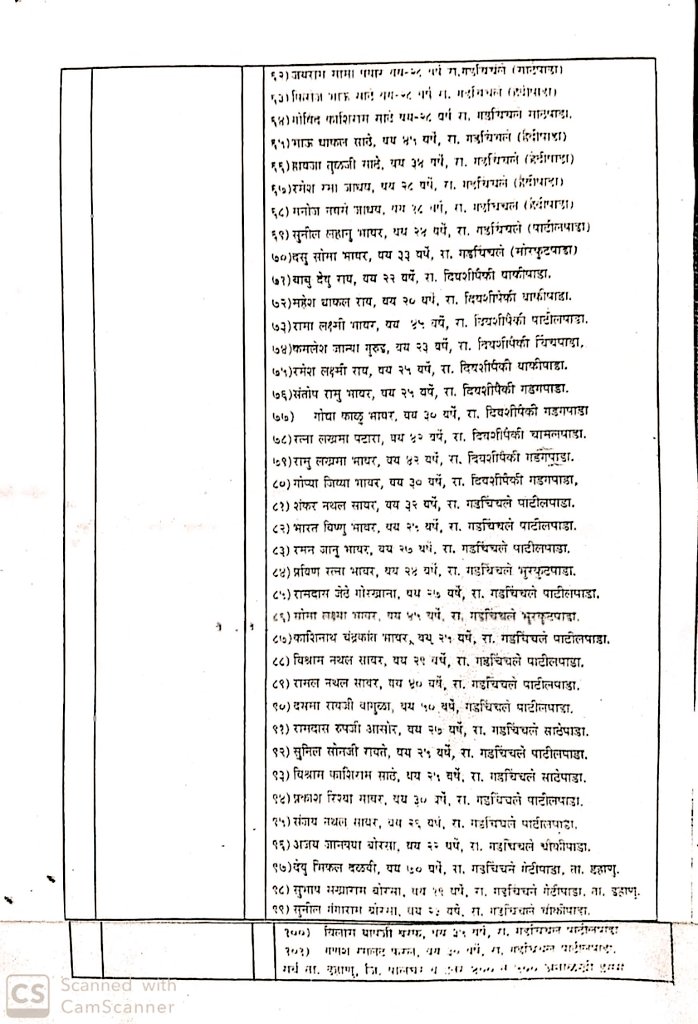 ६२) जयराम मामा पवार वय-२८ वर्षे रा.गडचिंचले (साठेपाडा)
६३) भाऊ साठे वय-२८ वर्षे रा. गडचिंचले (हेदीपाडा)
६४) गोविंद काशिराम साठे वय-२८ वर्षे रा. गडचिंचले साठेपाडा.
६५) भाऊ धाकल साठे, वय ४५ वर्षे, रा. गडचिंचले (हेदीपाडा)
६६) तुळजी साठे, वय ३४ वर्षे, रा. गडचिंचले (हेदीपाडा)
६७) रमेश रमा जाधव, वय २८ वर्षे, रा. गडचिंचले (हेदीपाडा)
६८) मनोज जाधव, वय १८ वर्षे, रा. गडचिंचले (हेदीपाडा)
६९) सुनील लहानु भावर, वय २४ वर्षे, रा. गडचिंचले (पाटीलपाडा)
७०) दसु सोमा भावर, वय ३३ वर्षे, रा. गडचिंचले (मोरकुटपाडा)
७१) बाबु देवु राव, वय २२ वर्षे, रा. दिवशीपैकी वाकीपाडा.
७२) महेश धाकल राव, वय २० वर्षे, रा. दिवशीपैकी वाकीपाडा.
७३) रामा लक्ष्मी भावर, वय ४५ वर्षे, रा. दिवशीपैकी पाटीलपाडा.
७४) कमलेश जान्या गुरुड, वय २३ वर्षे, रा. दिवशीपैकी चिंचपाडा,
७५) रमेश लक्ष्मी राव, वय २५ वर्षे, रा. दिवशीपैकी वाकीपाडा.
७६) संतोष रामु भावर, वय २५ वर्षे, रा. दिवशीपैकी गडगपाडा.
७७) गोद्या काळु भावर, वय ३० वर्षे, रा. दिवशीपैकी गडगपाडा
७८) रत्ना लखमा पटारा, वय ४२ वर्षे, रा. दिवशीपैकी चामलपाडा.
७९) रामु लखमा भावर, वय ४२ वर्षे, रा. दिवशीपैकी गडगपाडा.
८०) गोप्या जिव्या भावर, वय ३० वर्षे, रा. दिवशीपैकी गडगपाडा,
८१) शंकर नथल सावर, वय ३२ वर्षे, रा. गडचिंचले पाटीलपाडा.
८२) भारत विष्णु भावर, वय २५ वर्षे, रा. गडचिंचले पाटीलपाडा.
८३) रमन जानु भावर, वय २७ वर्षे, रा. गडचिंचले पाटीलपाडा.
८४) प्रविण रत्ना भावर, वय २४ वर्षे, रा. गडचिंचले भुरकुटपाडा.
८५) रामदास जेठे गोरखाना, वय २७ वर्षे, रा. गडचिंचले पाटीलपाडा.
८६) सोमा लक्ष्या भावर, वय ४५ वर्षे, रा. गडचिंचले भुरकुटपाडा.
८७) काशिनाथ चंद्रकांत भावर, वय २५ वर्षे, रा. गडचिंचले पाटीलपाडा.
८८) विश्राम नथल सावर, वय २९ वर्षे, रा. गडचिंचले पाटीलपाडा.
८९) रामल नथल सावर, वय ४० वर्षे, रा. गडचिंचले पाटीलपाडा.
९०) दसमा रावजी वागुळा, वय ५० वर्षे, गडचिंचले पाटीलपाडा.
९१) रामदास रुपजी आसोर, वय २७ वर्षे, रा. गडचिंचले साठेपाडा.
९२) सुनिल सोनजी रावते, वय २५ वर्षे, रा. गडचिंचले पाटीलपाडा.
९३) विश्राम काशिराम साठे, वय २५ वर्षे, रा. गडचिंचले साठेपाडा.
९४) प्रकाश रिश्या भावर, वय ३० वर्षे, रा. गडचिंचले पाटीलपाडा.
९५) संजय नथल सावर, वय २६ वर्षे, रा. गडचिंचले पाटीलपाडा.
९६) अजय जानवया बोरसा, वय २२ वर्षे, रा. गडचिंचले चौकीपाडा.
९७) देवु भिकल दळवी, वय ७० वर्षे, रा. गडचिंचले गेटीपाडा, ता. डहाणु.
९८) सुभाष सखाराम बोरसा, वय २९ वर्षे, रा. गडचिंचले गेटीपाडा, ता. डहाणु.
९९) सुनील गंगाराम बोरसा, वय २३ वर्षे, रा. गडचिंचले चौकीपाडा.
१००) विलास वय ३५ वर्षे, रा. गडचिंचले पाटीलपाडा
१०१) गणेश वय ३० वर्षे, रा. गडचिंचले पाटीलपाडा.
सर्व ता. डहाणु, जि. पालघर व इतर ४०० ते ५०० अनोळखी इसम
CS Scanned with
CamScanner